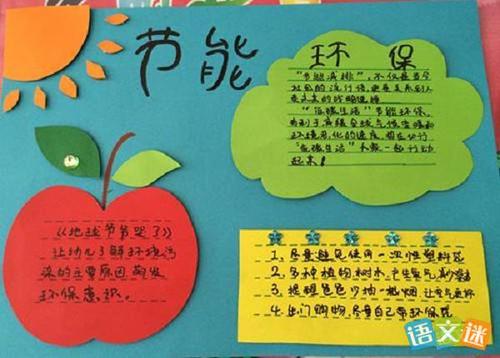 节能
环保
“节能减排”,不仅是当今
社会的流行语,更是关系到人
类未来的战略选择
“低碳生活”节能环保,
有利于减缓全球气候变暖和
环境恶化的速度
“低碳生活”
起来!
《地球爷爷哭了》
让幼儿了解环境污
染的主要原因 萌发
环保意识。
1、尽量避免使用一次性塑料花
2、多种植物树木,产生氧气,
3、提醒爸爸少抽一根烟,让空气更好
4、出门购物,尽量自己带环保袋
语文迷